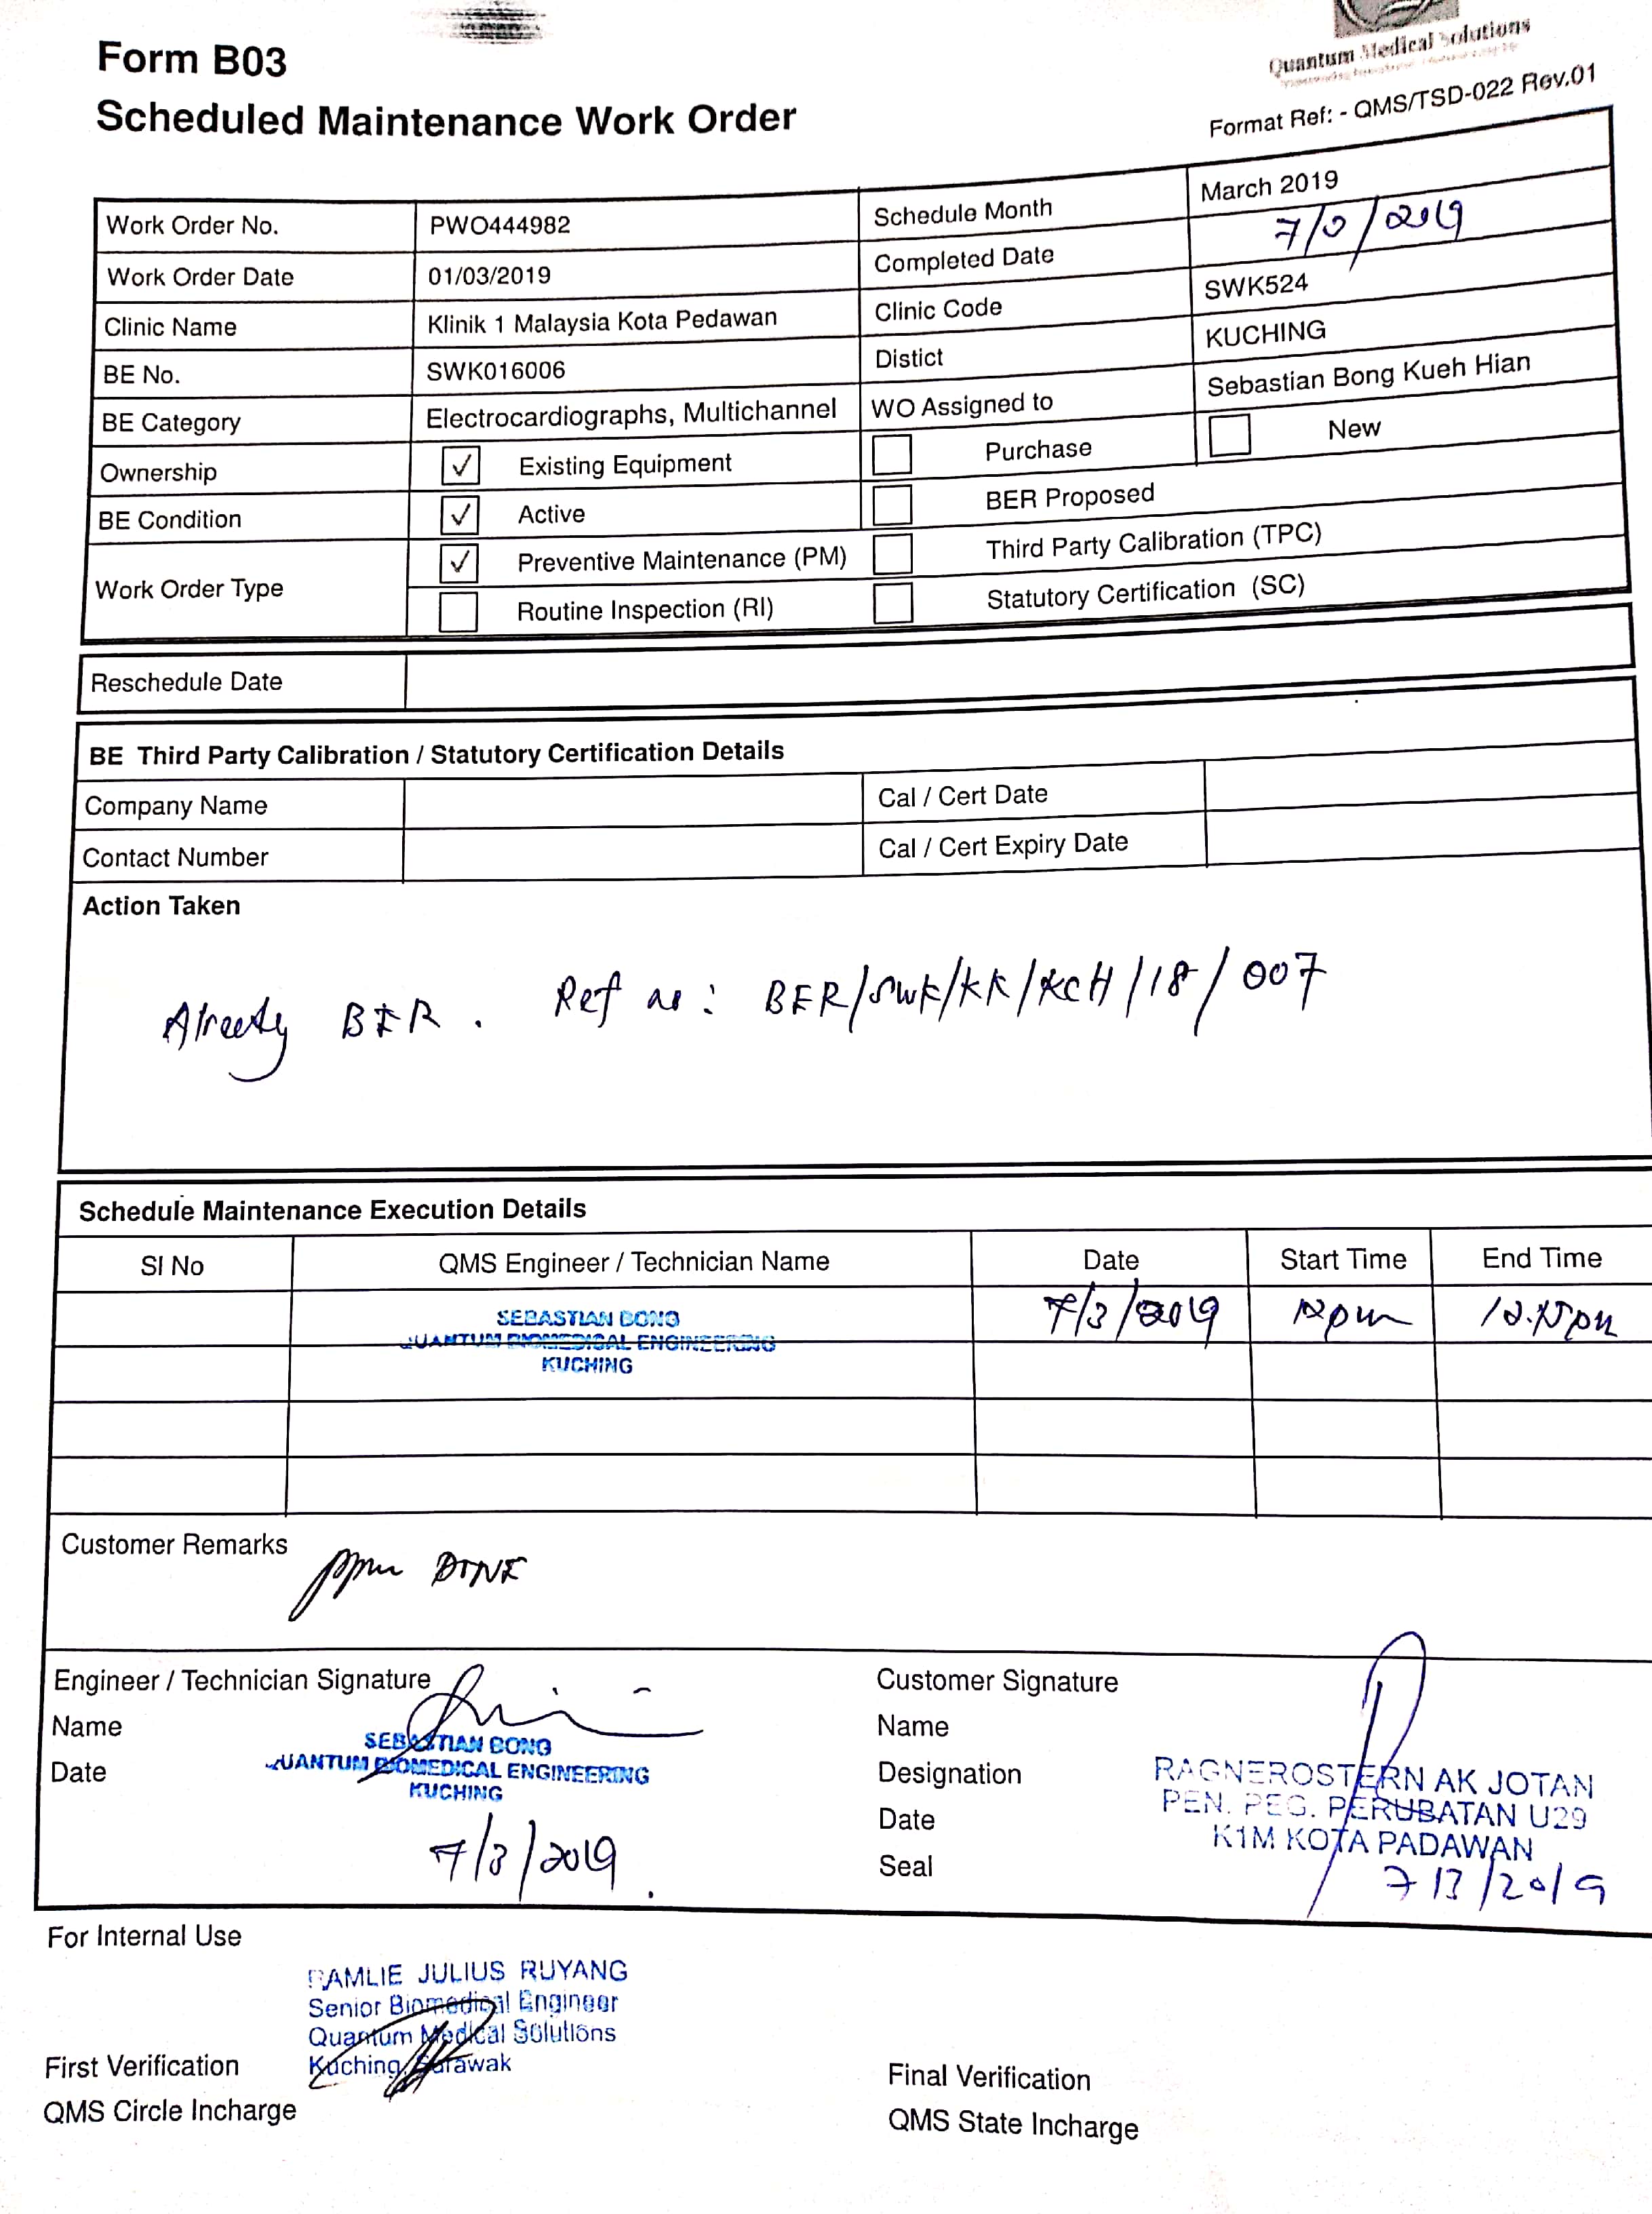 Quantum Medical Solutions
Form B03
Scheduled Maintenance Work Order
Format Ref: - QMS/TSD-022 Rev.01
Work Order No. PWO444982 Schedule Month March 2019
Work Order Date 01/03/2019 Completed Date 7/3/2019
Clinic Name Klinik 1 Malaysia Kota Pedawan Clinic Code SWK524
BE No. SWK016006 Distict KUCHING
BE Category Electrocardiographs, Multichannel WO Assigned to Sebastian Bong Kueh Hian
Ownership ✓ Existing Equipment Purchase New
BE Condition ✓ Active BER Proposed
Work Order Type ✓ Preventive Maintenance (PM) Third Party Calibration (TPC)
Routine Inspection (RI) Statutory Certification (SC)
Reschedule Date
BE Third Party Calibration / Statutory Certification Details
Company Name Cal / Cert Date
Contact Number Cal / Cert Expiry Date
Action Taken
Already BER. Ref no: BER/SWK/KK/KCH/18/007
Schedule Maintenance Execution Details
SI No QMS Engineer / Technician Name Date Start Time End Time
SEBASTIAN BONG 7/3/2019 12pm 12.15pm
QUANTUM BIOMEDICAL ENGINEERING
KUCHING
Customer Remarks ppm DONE
Engineer / Technician Signature
Name SEBASTIAN BONG
Date QUANTUM BIOMEDICAL ENGINEERING
KUCHING
7/3/2019
Customer Signature
Name
Designation RAGNEROSTERN AK JOTAN
PEN. PEG. PERUBATAN U29
Date K1M KOTA PADAWAN
Seal 7/3/2019
For Internal Use
RAMLIE JULIUS RUYANG
Senior Biomedical Engineer
Quantum Medical Solutions
Kuching, Sarawak
First Verification Final Verification
QMS Circle Incharge QMS State Incharge